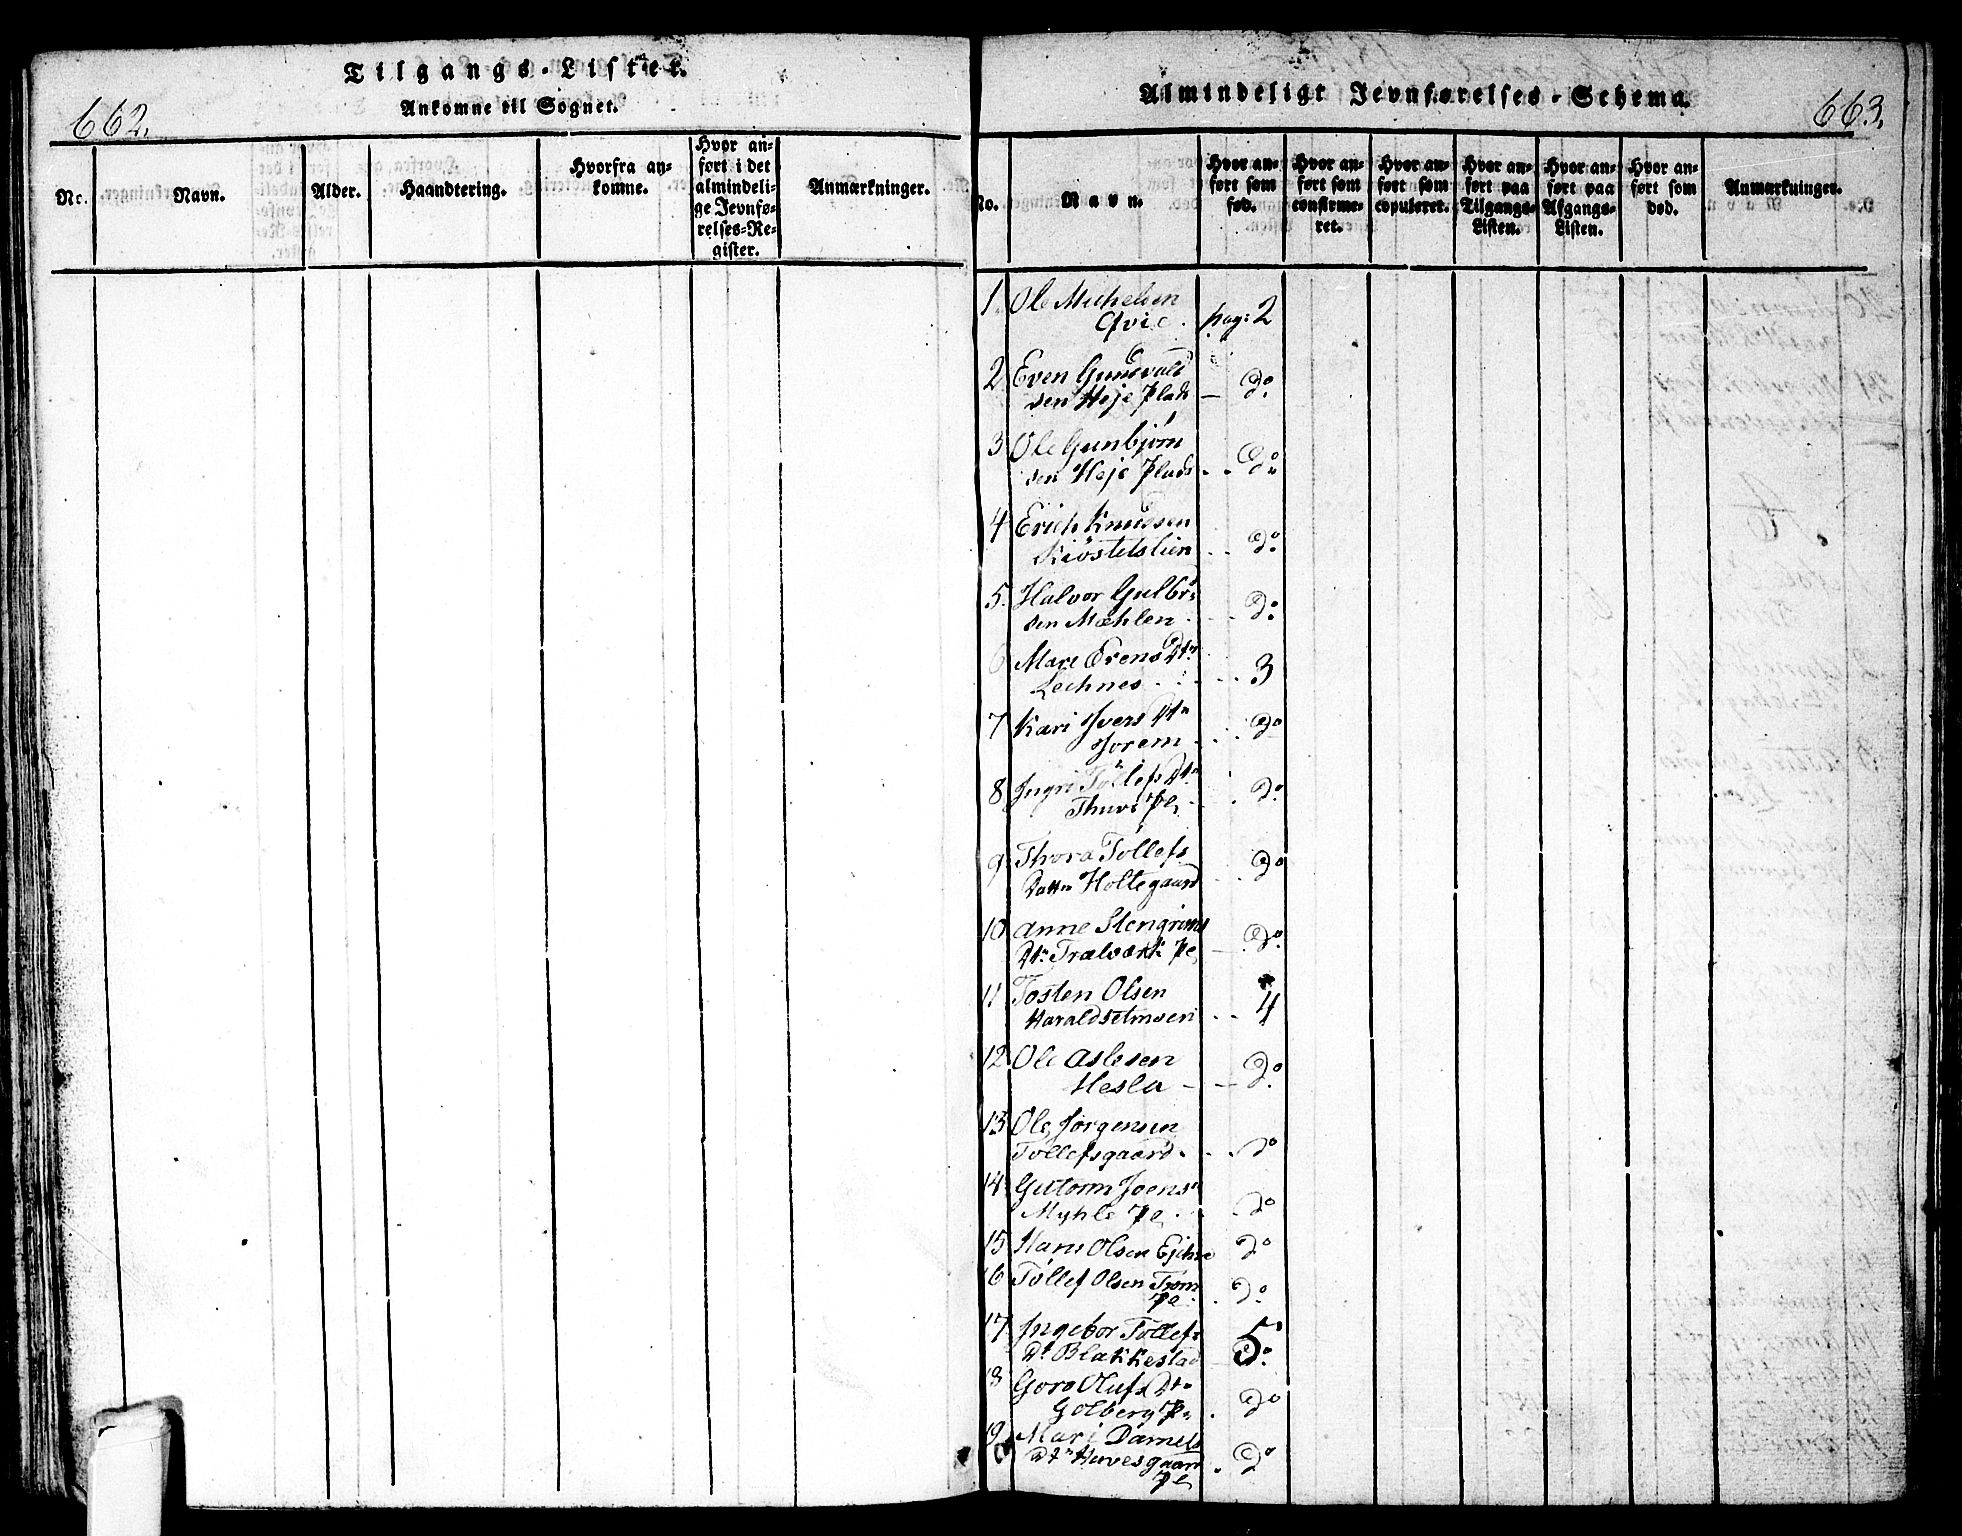 Tilgangs-Lister.
Ankomne til Sognet.
662.
No.
Navn.
Alder.
Haandtering.
Hvorfra an-
komne.
Hvor an-
ført i det
almindeli-
ge Jevnfø-
relses-Re-
gister.
Anmærkninger.
Almindeligt Jevnførelses-Schema.
663.
No.
Navn.
Hvor an-
ført som
fød.
Hvor an-
ført som
confirme-
ret.
Hvor an-
ført som
copuleret.
Hvor an-
ført paa
Tilgangs-
Listen.
Hvor an-
ført paa
Afgangs-
Listen.
Hvor an-
ført som
død.
Anmærkninger.
1. Ole Michelsen
Qvie. pag: 2
2 Even Gundvald
sen Heje Plads — do.
3 Ole Gunbjørn
sen Heje Plads - - do
4 Erich Knudsen
Kiöstelslien - - do.
5. Halvor Gulbr:
sen Mæhlen - - - do.
6 Mari Evens Dtr
Lechnes - - - 3
7 Kari Ivers Dtr
- - - do
8 Ingri Tollefs Dtr
Thuve Pl - - do
9 Thora Tollefs
Datter Holtegaard - - do
10 Anne Stengrims
Dtr Trælværk Pl — do.
11 Tosten Olsen
Haraldsetmoen - - 4
12 Ole Aslesen
Hesla - - - do.
13 Ole Jørgensen
Tollefsgaard. - - do
14 Gutorm Joens
Myhle Pl - - do
15 Hans Olsen do
16 Tollef Olsen Trøm
Pl - do.
17 Ingebor Tollefs 5
Dr Blakkestad do.
18 Goro Olufs Dtr
Golberg Pl. do
19. Mari Daniels
Dtr Havesgaard do
Pl